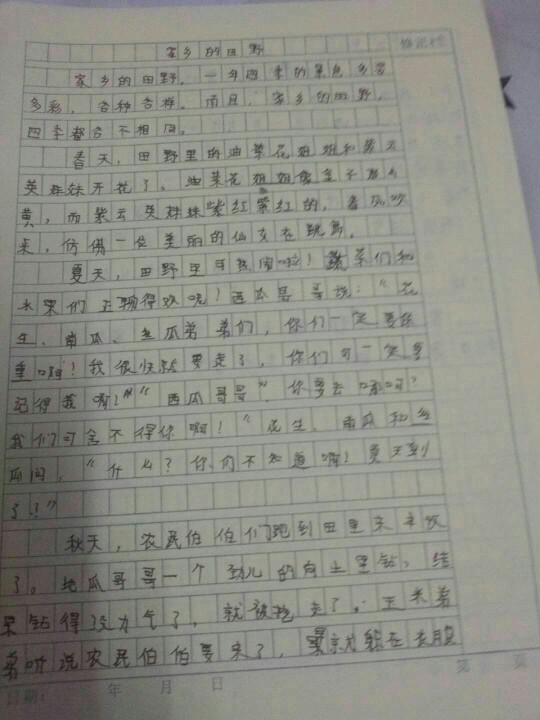 修正栏
家乡的田野
家乡的田野，一年四季的景色多姿
多彩，各种各样。而且，家乡的田野，
四季都各不相同。
春天，田野里的油菜花姐姐和紫云
英妹妹开花了，油菜花姐姐像金子那么
黄，而紫云英妹妹紫红紫红的，春风吹
来，仿佛一位美丽的仙女在跳舞。
夏天，田野里可热闹啦！蔬菜们和
水果们正聊得欢呢！西瓜哥哥说："花
生、南瓜、丝瓜弟弟们，你们一定要保
重啊！我很快就要走了，你们可一定要
记得我啊！""西瓜哥哥，你要去哪呵？
我们可舍不得你啊！"花生、南瓜和丝
瓜问，"什么？你们不知道啊！夏天到
了！"
秋天，农民伯伯们跑到田里来丰收
了。地瓜哥哥一个劲儿的向土里钻，结
果钻得没力气了，就被挖走了。玉米弟
弟听说农民伯伯要来了，就躲在衣服
日期： 年 月 日 第 页